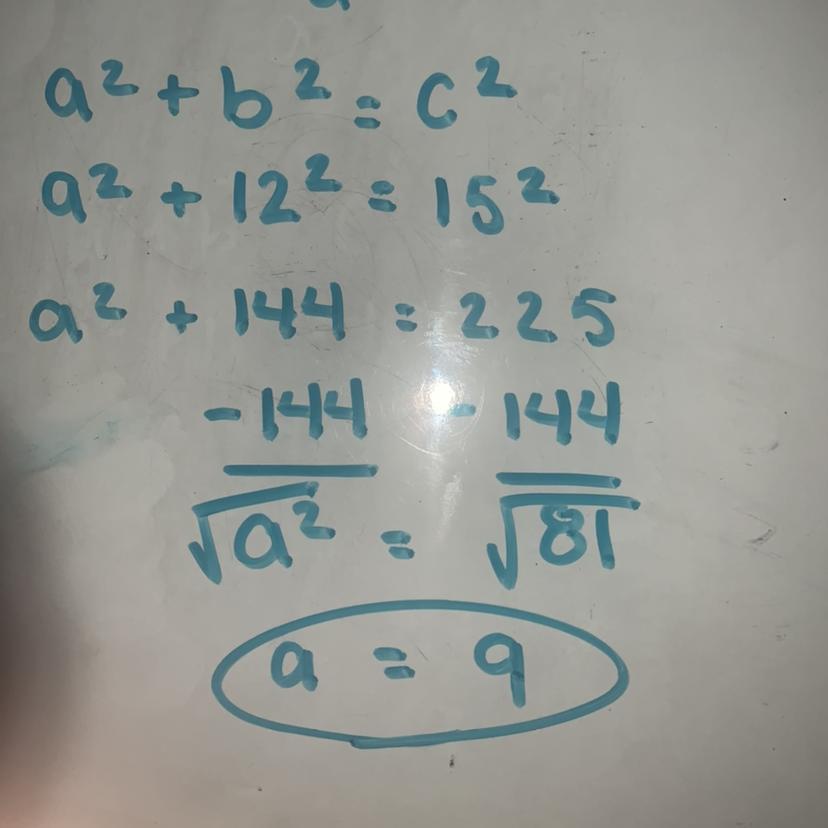 a² + b² = c²
a² + 12² = 15²
a² + 144 = 225
-144 - 144
√a² = √81
a = 9